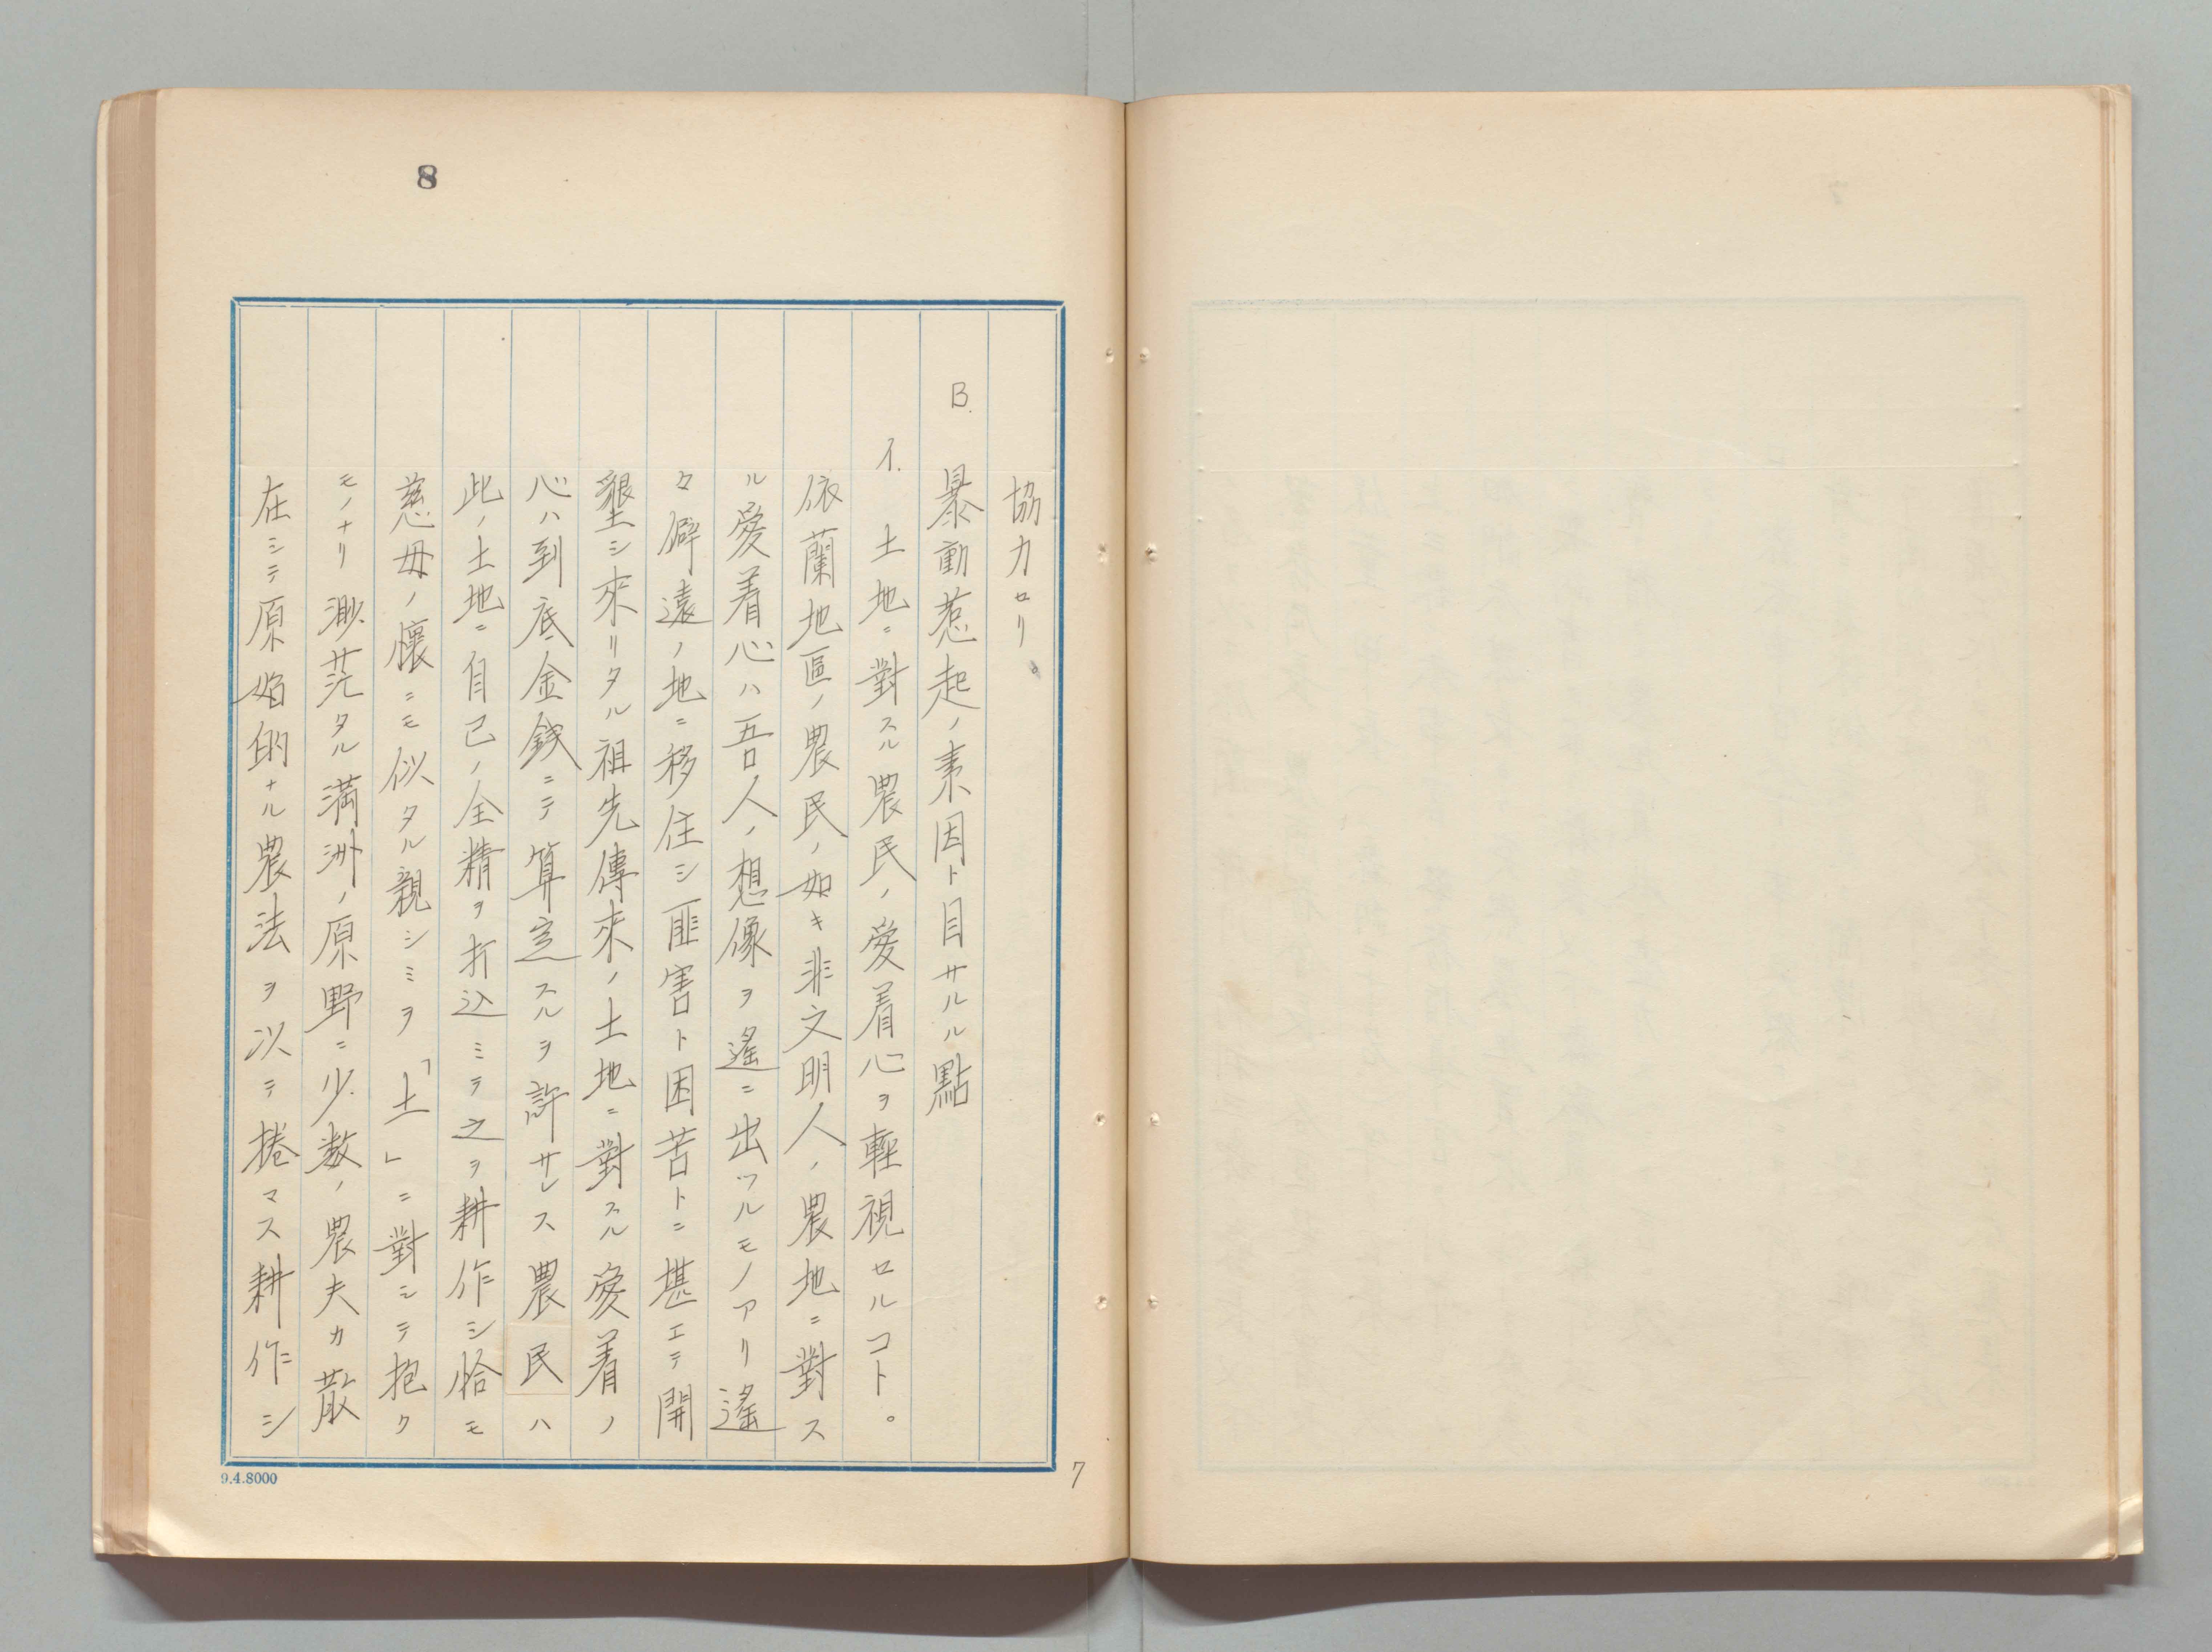 8
協力セリ。
B. 暴動惹起ノ素因ト目サルル點
イ. 土地ニ對スル農民ノ愛着心ヲ輕視セルコト。
依蘭地區ノ農民ノ如キ非文明人ノ農地ニ對ス
ル愛着心ハ吾人ノ想像ヲ遙ニ出ツルモノアリ遙
々僻遠ノ地ニ移住シ匪害ト困苦トニ堪エテ開
墾シ來リタル祖先傳來ノ土地ニ對スル愛着ノ
心ハ到底金錢ニテ算定スルヲ許サレス農民ハ
此ノ土地ニ自己ノ全精ヲ打込ミテ之ヲ耕作シ恰モ
慈母ノ懷ニモ似タル親シミヲ「土」ニ對シテ抱ク
モノナリ渺茫タル満洲ノ原野ニ少数ノ農夫カ散
在シテ原始的ナル農法ヲ以テ捲マス耕作シ
9.4.8000
7